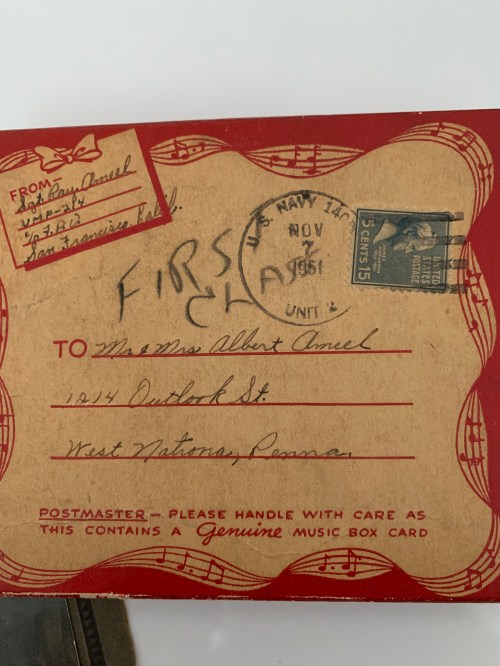 FROM—
Sgt Ray Ameel
VMF-214
San Francisco Calif.
FIRST
CLASS
U.S. NAVY 140
NOV
7
1951
UNIT 2
5 CENTS 15
UNITED
STATES
POSTAGE
TO Mr & Mrs Albert Ameel
1214 Outlook St.
West Natrona, Penna.
POSTMASTER — PLEASE HANDLE WITH CARE AS
THIS CONTAINS A Genuine MUSIC BOX CARD